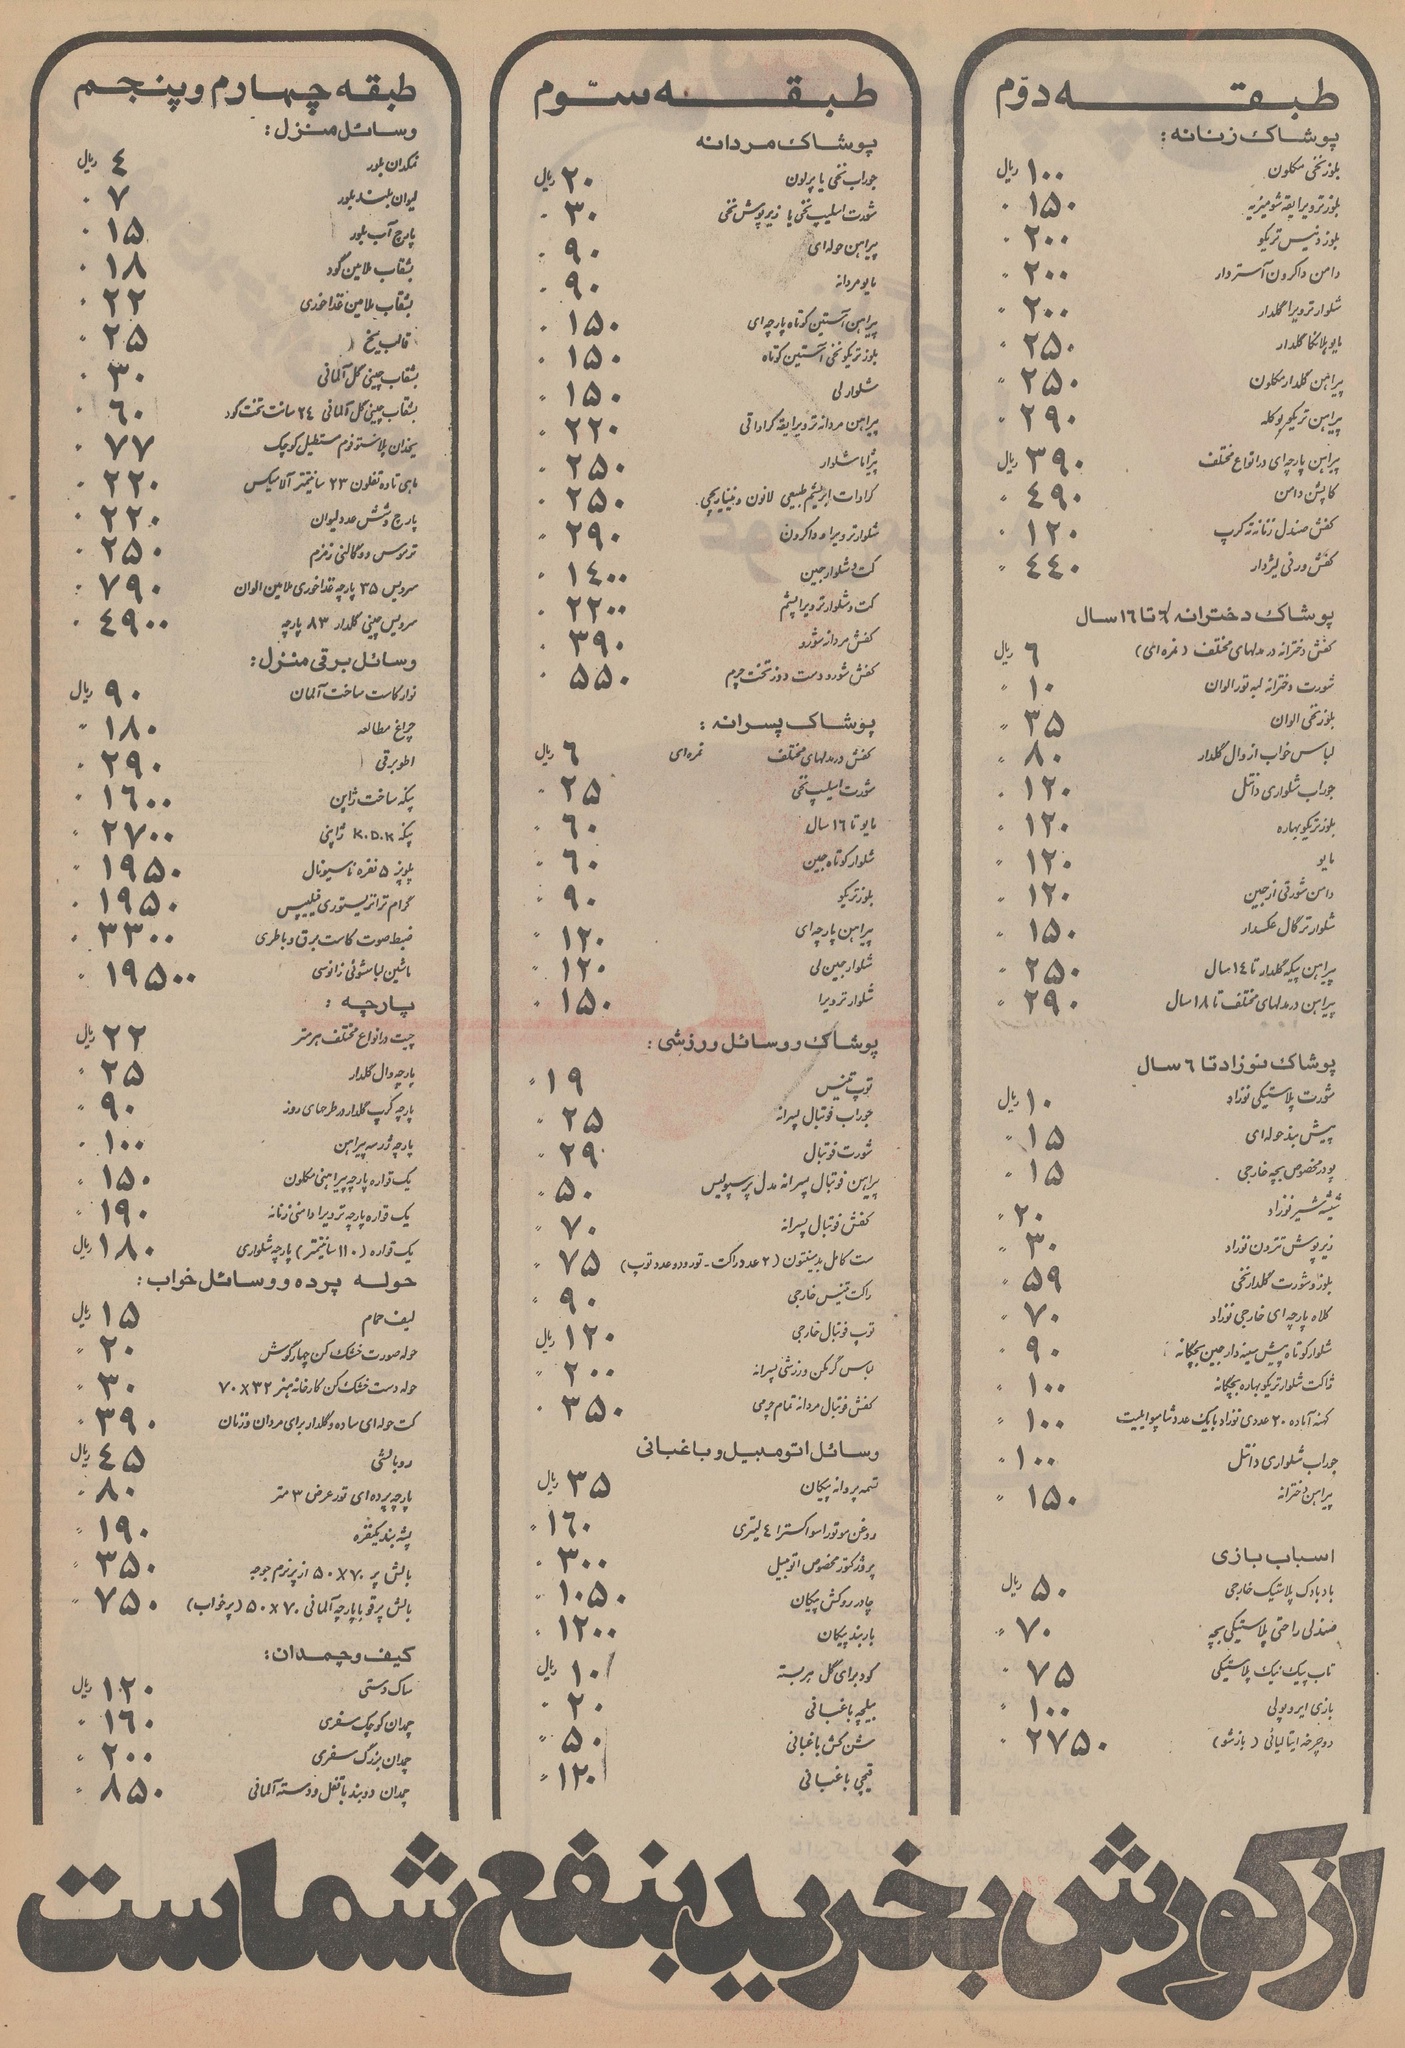 طبقه دوّم
پوشاک زنانه:
بلوز نخی مکلون ۱۰۰ ریال
بلوز ترویرا یقه شومیزیه ۱۵۰ »
بلوز ونیس تریکو ۲۰۰ »
دامن داکرون آستردار ۲۰۰ »
شلوار ترویرا گلدار ۲۰۰ »
مایو هلانکا گلدار ۲۵۰ »
پیراهن گلدار مکلون ۲۵۰ »
پیراهن تریکو بوکله ۲۹۰ »
پیراهن پارچه‌ای در انواع مختلف ۳۹۰ ریال
کاپشن دامن ۴۹۰ »
کفش صندل زنانه ته کرپ ۱۲۰ »
کفش ورنی لژدار ۴۴۰ »
پوشاک دخترانه ۶ تا ۱۶ سال
کفش دخترانه در مدلهای مختلف (نمره‌ای) ۶ ریال
شورت دخترانه لبه تور الوان ۱۰ »
بلوز نخی الوان ۳۵ »
لباس خواب از وال گلدار ۸۰ »
جوراب شلواری دانتل ۱۲۰ »
بلوز تریکو بهاره ۱۲۰ »
مایو ۱۲۰ »
دامن شورتی از جین ۱۲۰ »
شلوار ترگال عکسدار ۱۵۰ »
پیراهن پیکه گلدار تا ۱۴ سال ۲۵۰ »
پیراهن در مدلهای مختلف تا ۱۸ سال ۲۹۰ »
پوشاک نوزاد تا ۶ سال
شورت پلاستیکی نوزاد ۱۰ ریال
پیش بند حوله‌ای ۱۵ »
پودر مخصوص بچه خارجی ۱۵ »
شیشه شیر نوزاد ۲۰ »
زیرپوش تترون نوزاد ۳۰ »
بلوز و شورت گلدار نخی ۵۹ »
کلاه پارچه‌ای خارجی نوزاد ۷۰ »
شلوار کوتاه پیش سینه دار جین بچگانه ۹۰ »
ژاکت شلوار تریکو بهاره بچگانه ۱۰۰ »
کهنه آماده ۲۰ عددی نوزاد با یک عدد شامپو ایلیت ۱۰۰ »
جوراب شلواری دانتل ۱۰۰ »
پیراهن دخترانه ۱۵۰ »
اسباب بازی
بادبادک پلاستیک خارجی ۵۰ ریال
صندلی راحتی پلاستیکی بچه ۷۰ »
تاب پیک نیک پلاستیکی ۷۵ »
بازی ایروپولی ۱۰۰ »
دوچرخه ایتالیائی (بازشو) ۲۷۵۰ »
طبقه سوّم
پوشاک مردانه
جوراب نخی یا پرلون ۲۰ ریال
شورت اسلیپ نخی یا زیرپوش نخی ۳۰ »
پیراهن حوله‌ای ۹۰ »
مایو مردانه ۹۰ »
پیراهن آستین کوتاه پارچه‌ای ۱۵۰ »
بلوز تریکو نخی آستین کوتاه ۱۵۰ »
شلوار لی ۱۵۰ »
پیراهن مردانه ترویرا یقه کراداتی ۲۲۰ »
پیژاما شلوار ۲۵۰ »
کراوات ابریشم طبیعی لانون و نیناریچی ۲۵۰ »
شلوار ترویرا و داکرون ۲۹۰ »
کت و شلوار جین ۱۴۰۰ »
کت و شلوار ترویرا پشم ۲۲۰۰ »
کفش مردانه شورو ۳۹۰ »
کفش شورو دست دوز تخت چرم ۵۵۰ »
پوشاک پسرانه:
کفش در مدلهای مختلف نمره‌ای ۶ ریال
شورت اسلیپ نخی ۲۵ »
مایو تا ۱۶ سال ۶۰ »
شلوار کوتاه جین ۶۰ »
بلوز تریکو ۹۰ »
پیراهن پارچه‌ای ۱۲۰ »
شلوار جین لی ۱۲۰ »
شلوار ترویرا ۱۵۰ »
پوشاک و وسائل ورزشی:
توپ تنیس ۱۹ »
جوراب فوتبال پسرانه ۲۵ »
شورت فوتبال ۲۹ »
پیراهن فوتبال پسرانه مدل پرسپولیس ۵۰ »
کفش فوتبال پسرانه ۷۰ »
ست کامل بدمینتون (۲ عدد راکت - تور و دو عدد توپ) ۷۵ »
راکت تنیس خارجی ۹۰ »
توپ فوتبال خارجی ۱۲۰ ریال
لباس گرمکن ورزشی پسرانه ۲۰۰ »
کفش فوتبال مردانه تمام چرمی ۳۵۰ »
وسائل اتومبیل و باغبانی
تسمه پروانه پیکان ۳۵ ریال
روغن موتور اسواکسترا ۴ لیتری ۱۶۰ »
پروژکتور مخصوص اتومبیل ۳۰۰ »
چادر روکش پیکان ۱۰۵۰ »
باربند پیکان ۱۲۰۰ »
کود برای گل هر بسته ۱۰ ریال
بیلچه باغبانی ۲۰ »
شن کش باغبانی ۵۰ »
قیچی باغبانی ۱۲۰ »
طبقه چهارم و پنجم
وسائل منزل:
نمکدان بلور ۴ ریال
لیوان بلند بلور ۷ »
پارچ آب بلور ۱۵ »
بشقاب ملامین گود ۱۸ »
بشقاب ملامین غذاخوری ۲۲ »
قالب یخ ۲۵ »
بشقاب چینی گل آلمانی ۳۰ »
بشقاب چینی گل آلمانی ۲۴ سانت تخت گود ۶۰ »
یخدان پلاستوفوم مستطیل کوچک ۷۷ »
ماهی تابه تفلون ۲۳ سانتیمتر آلامیکس ۲۲۰ »
پارچ و شش عدد لیوان ۲۲۰ »
ترموس دو گالنی زمزم ۲۵۰ »
سرویس ۳۵ پارچه غذاخوری ملامین الوان ۷۹۰ »
سرویس چینی گلدار ۸۳ پارچه ۴۹۰۰ »
وسائل برقی منزل:
نوار کاست ساخت آلمان ۹۰ ریال
چراغ مطالعه ۱۸۰ »
اطو برقی ۲۹۰ »
پنکه ساخت ژاپن ۱۶۰۰ »
پنکه K.D.K ژاپنی ۲۷۰۰ »
پلوپز ۵ نفره ناسیونال ۱۹۵۰ »
گرام ترانزیستوری فیلیپس ۱۹۵۰ »
ضبط صوت کاست برق و باطری ۳۳۰۰ »
ماشین لباسشوئی زانوسی ۱۹۵۰۰ »
پارچه:
چیت در انواع مختلف هر متر ۲۲ ریال
پارچه وال گلدار ۲۵ »
پارچه کرپ گلدار در طرحهای روز ۹۰ »
پارچه ژرسه پیراهن ۱۰۰ »
یک قواره پارچه پیراهنی مکلون ۱۵۰ »
یک قواره پارچه ترویرا دامنی زنانه ۱۹۰ »
یک قواره (۱۱۰ سانتیمتر) پارچه شلواری ۱۸۰ ریال
حوله پرده و وسائل خواب:
لیف حمام ۱۵ ریال
حوله صورت خشک کن چهارگوش ۲۰ »
حوله دست خشک کن کارخانه هنر ۳۲×۷۰ ۳۰ »
کت حوله‌ای ساده و گلدار برای مردان و زنان ۳۹۰ »
روبالشی ۴۵ ریال
پارچه پرده‌ای تور عرض ۳ متر ۸۰ »
پشه بند یکنفره ۱۹۰ »
بالش پر ۷۰×۵۰ از پر نرم جوجه ۳۵۰ »
بالش پر قو با پارچه آلمانی ۷۰×۵۰ (پرخواب) ۷۵۰ »
کیف و چمدان:
ساک دستی ۱۲۰ ریال
چمدان کوچک سفری ۱۶۰ »
چمدان بزرگ سفری ۲۰۰ »
چمدان دو بند با قفل و دسته آلمانی ۸۵۰ »
از کورش بخرید بنفع شماست